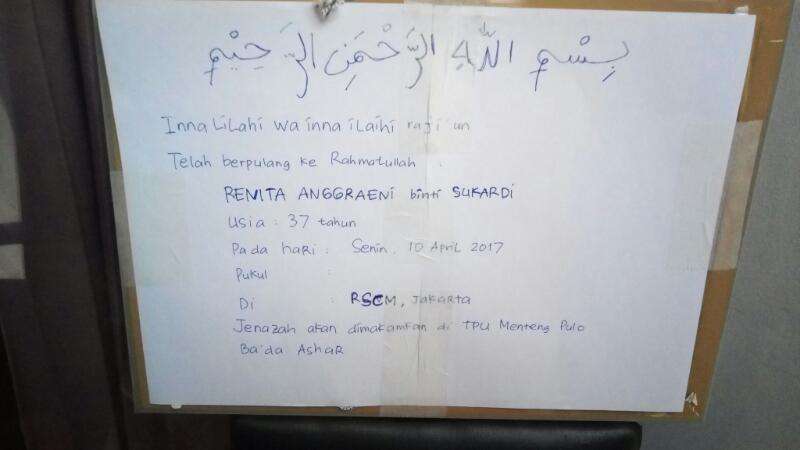 بِسْمِ اللّٰهِ الرَّحْمَنِ الرَّحِيْمِ
Inna Lilahi wa inna ilaihi raji'un
Telah berpulang ke Rahmatullah :
RENITA ANGGRAENI binti SUKARDI
Usia : 37 tahun
Pada hari : Senin, 10 April 2017
Pukul :
Di : RSCM, Jakarta
Jenazah akan dimakamkan di TPU Menteng Pulo
Ba'da Ashar